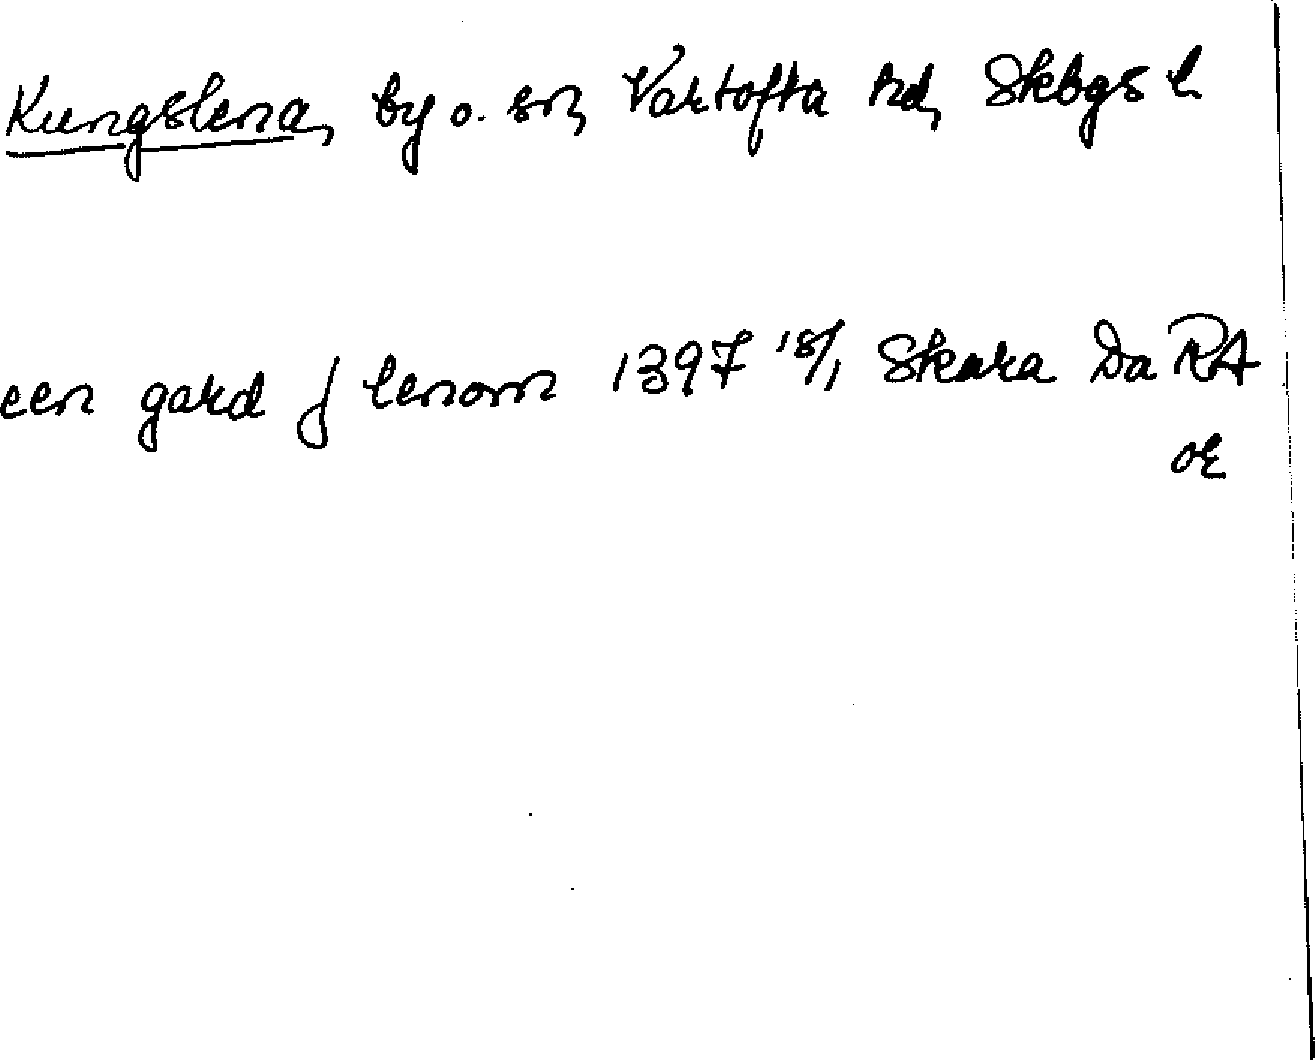 Kungslena, by o. sn, Vartofta hd, Skbgs l.
een gard j lenom 1397 18/1 Skara Da RA
or